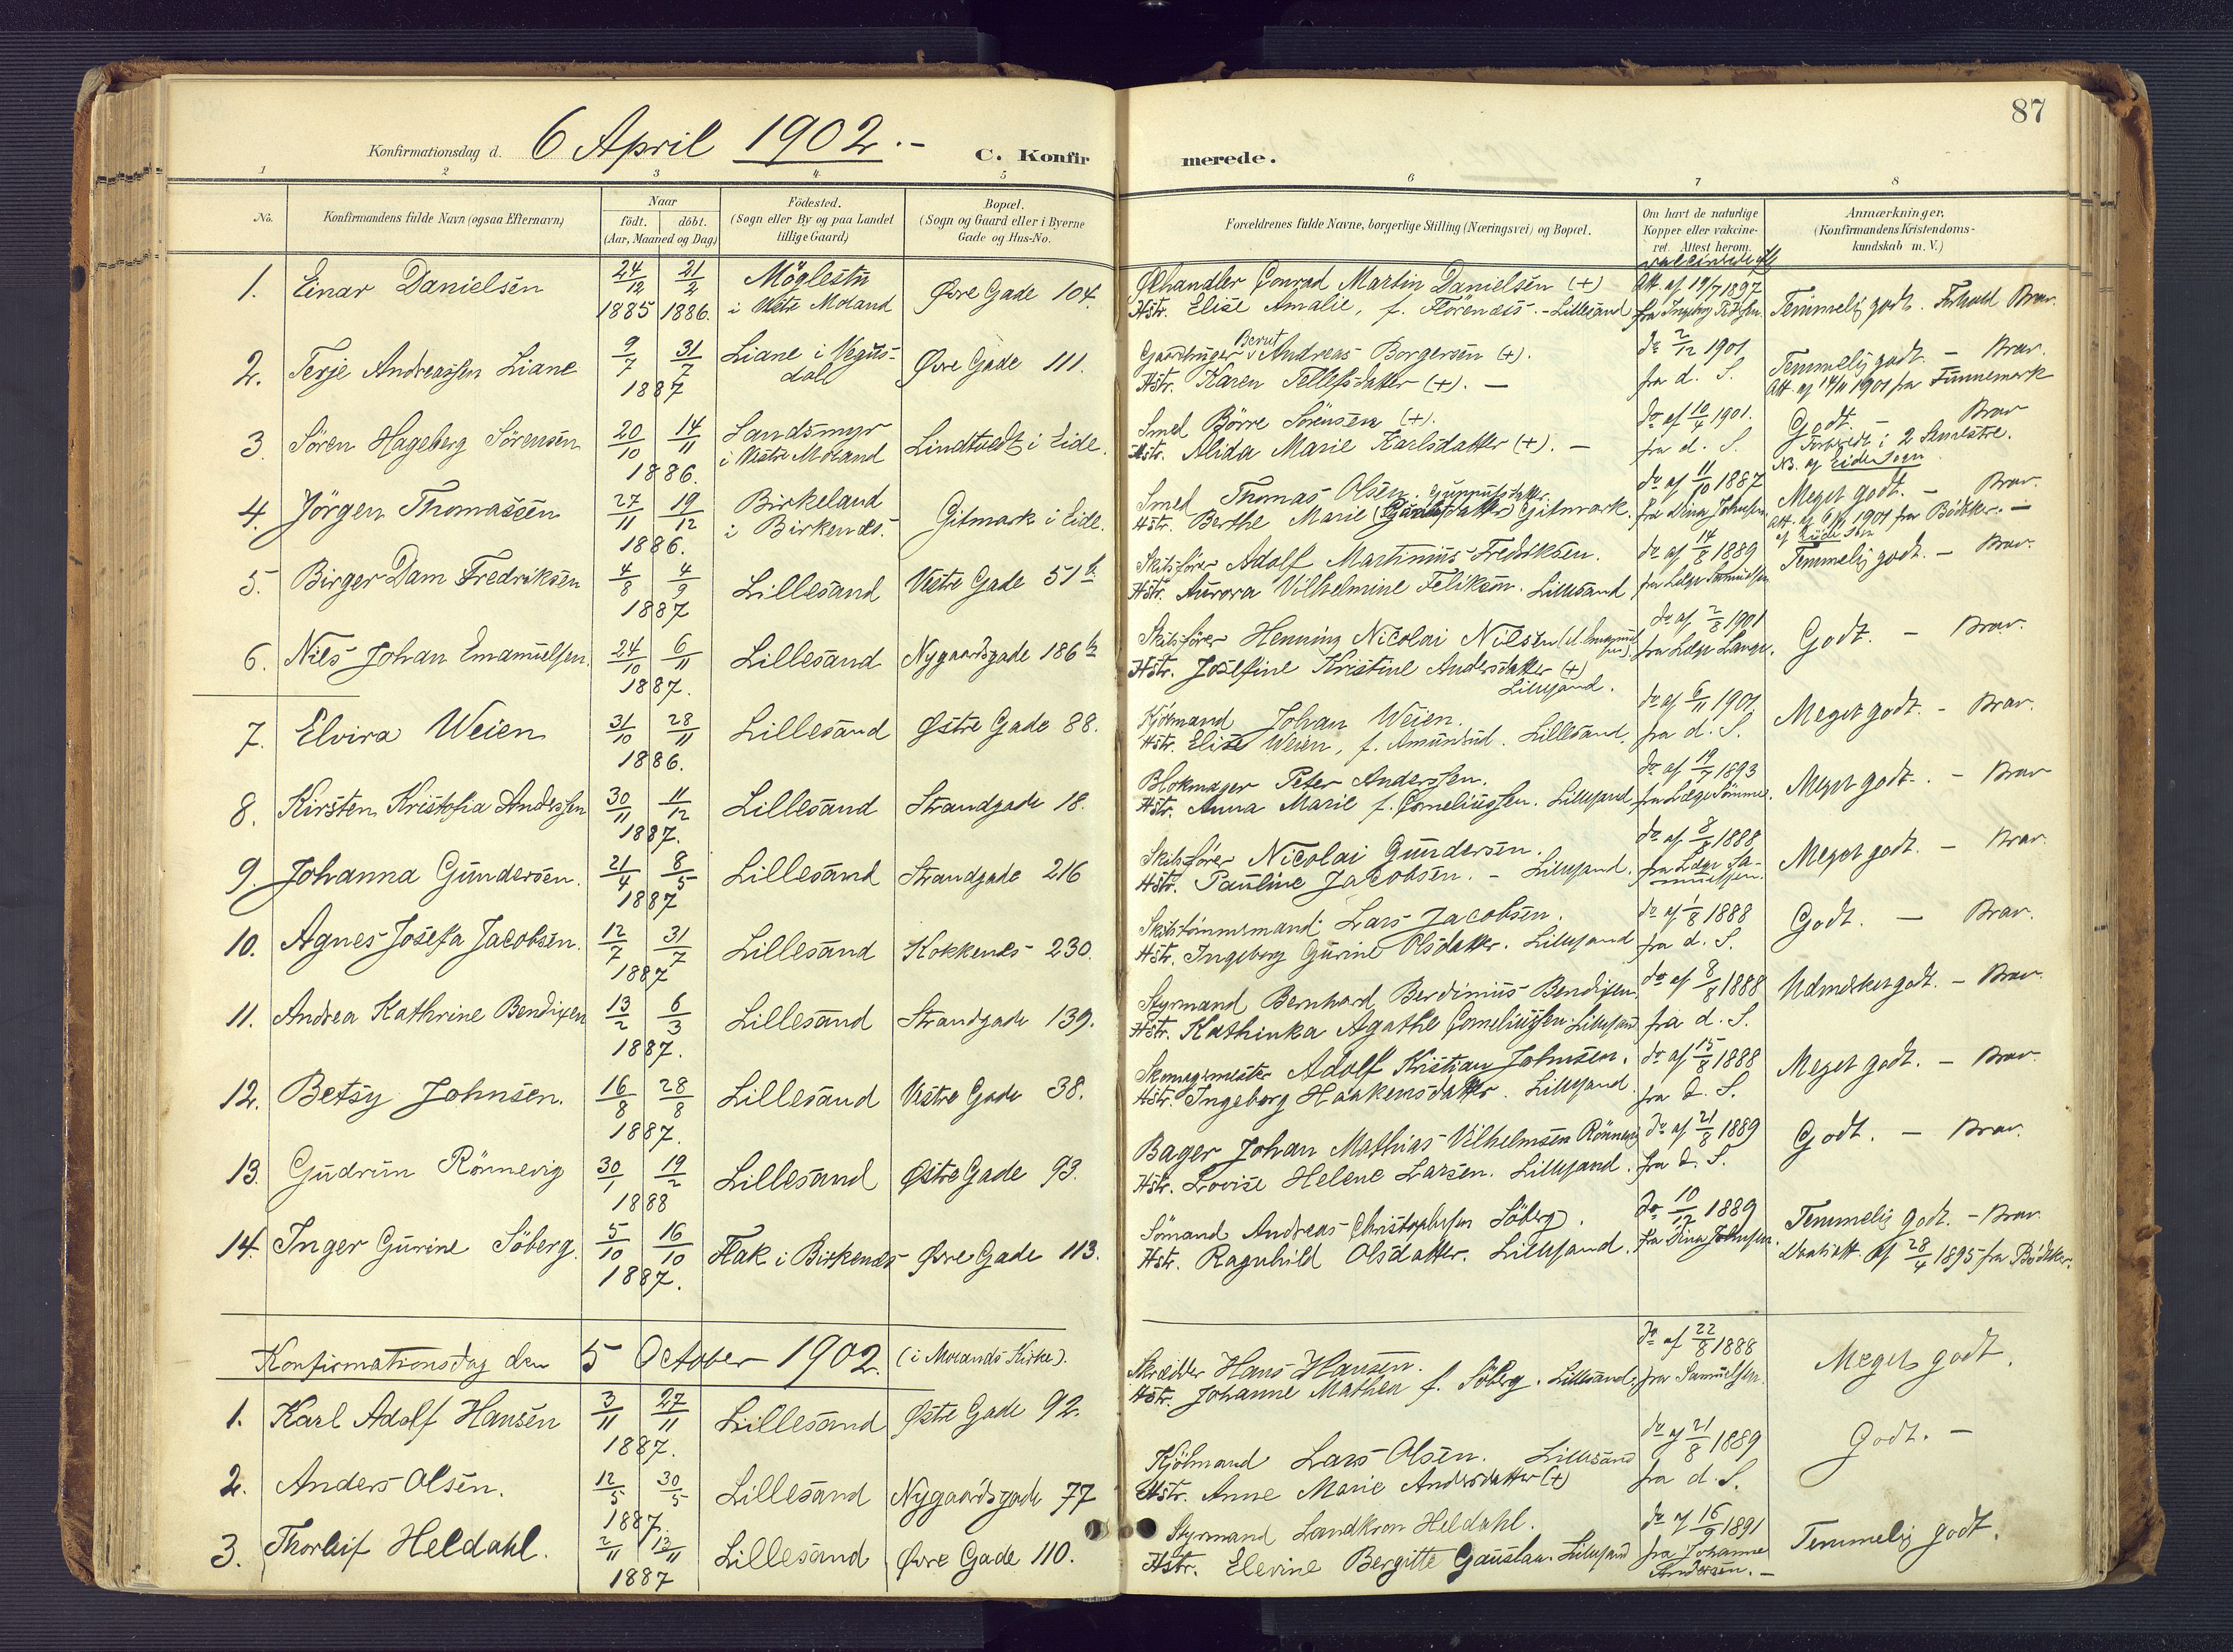 87
Konfirmationsdag d. 6 April 1902.-
C. Konfirmerede.
1 2 3 4. 5 6 7 8
No. Konfirmandens fulde Navn (ogsaa Efternavn) Naar Födested. Bopæl. Forældrenes fulde Navne, borgerlige Stilling (Næringsvei) og Bopæl. Om havt de naturlige Anmærkninger.
födt. döbt. (Sogn eller By og paa Landet (Sogn og Gaard eller i Byerne Kopper eller vakcine- (Konfirmandens Kristendoms-
(Aar, Maaned og Dag) tillige Gaard) Gade og Hus-No. ret. Attest herom. kundskab m. V.)
1. Einar Danielsen 24/12 1885 21/2 1886. Möglestu i Vestre Moland Øvre Gade 104.
Ølhandler Conrad Martin Danielsen (+) Att. af 19/7 1897
Hstr. Elise Amalie, f. Lillesand fra Ingeborg Temmelig godt. Forhold Brav.
2. Terje Andreassen Liane 9/7 31/7 1887 Liane i Vegusdall Øvre Gade 111.
Gaardbruger Berut Andreas Borgersen (+). do 2/12 1901 Temmelig godt. - Brav.
Hstr. Karen Tellefsdatter (+). — fra d. S. Att. af 14/11 1901 fra Finnemark
3. Sören Hageberg Sörensen 20/10 14/11 1886. Landsmyr i Vestre Moland Lindtvedt i Eide.
Smed Börre Sörensen (+). do af 10/4 1901. Godt. - Brav
Hstr. Alida Marie Karlsdatter (+). — fra d. S. i 2 Semestre.
NB. af Eide Sogn
4. Jörgen Thomassen 27/11 19/12 1886. Birkeland i Birkenæs. Gitmark i Eide.
Smed Thomas Olsen. do af 11/10 1887 Meget godt. - Brav.
Hstr. Berthe Marie Gitmark. fra Dina Johnsen. Att. af 6/11 1901 fra Bödtker. —
af Eide Sogn
5. Birger Dam Fredriksen 4/8 4/9 1887 Lillesand Vestre Gade 51b
Skibsförer Adolf Martinius Fredriksen. do af 14/8 1889 Temmelig godt. - Brav.
Hstr. Aurora Vilhelmine Felikson. Lillesand fra Læge Samuelsen
6. Nils Johan Emanuelsen. 24/10 6/11 1887. Lillesand Nygaardsgade 186b
Skibsförer Henning Nicolai Nilsen do af 2/8 1901 Godt. - Brav.
Hstr. Josefine Kristine Andersdatter (+) fra Læge Lange.
Lillesand.
7. Elvira Weien 31/10 28/11 1886. Lillesand Østre Gade 88.
Kjöbmand Johan Weien. do af 6/11 1901. Meget godt. - Brav.
Hstr. Elise Weien, f. Amundsud. Lillesand. fra d. S.
8. Kirsten Kristofia Anderssen 30/11 11/12 1887. Lillesand Strandgade 18.
Blokmager Peter Anderssen. do af 19/7 1893 Meget godt. - Brav
Hstr. Anna Marie f. Corneliussen. Lillesand. fra Læge Sömme.
9. Johanna Gundersen. 21/4 8/5 1887 Lillesand Strandgade 216
Skibsförer Nicolai Gundersen. 1888 Meget godt. - Brav.
Hstr. Pauline Jacobsen. - Lillesand. fra Læge Samuelsen.
10. Agnes Josefa Jacobsen. 12/7 31/7 1887 Lillesand Kokkenes 230.
Skibstömmermand Lars Jacobsen. do af 1/8 1888 Godt. — Brav.
Hstr. Ingeborg Gurine Olsdatter. Lillesand fra d. S.
11. Andrea Kathrine Bendixen 13/2 6/3 1887. Lillesand Strandgade 139.
Styrmand Bernhard Berdinius Bendixen. do af 8/8 1888 Udmerket godt. - Brav
Hstr. Kathinka Agathe Corneliussen. Lillesand fra d. S.
12. Betsy Johnsen. 16/8 28/8 1887. Lillesand Vestre Gade 38.
Skomagermester Adolf Kristian Johnsen. do af 15/8 1888 Meget godt. - Brav.
Hstr. Ingeborg Haakensdatter. Lillesand. fra d. S.
13. Gudrun Rönnevig 30/1 19/2 1888 Lillesand Østre Gade 93.
Bager Johan Mathias Vilhelmsen Rönnevig do af 21/8 1889 Godt. - Brav.
Hstr. Lovise Helene Larsen. Lillesand. fra d. S.
14. Inger Gurine Söberg. 5/10 16/10 1887. Flak i Birkenæs Øvre Gade 113.
Sömand Andreas Christophersen Söberg. do 10/12 1889 Temmelig godt. - Brav.
Hstr. Ragnhild Olsdatter. Lillesand. fra Dina Johnsen. Daabsatt. af 28/4 1895 fra Bödtker.
Konfirmationsdag den 5 October 1902. (i Molands Kirke).
1. Karl Adolf Hansen 3/11 27/11 1887. Lillesand Østre Gade 92.
Skrædder Hans Hansen. do af 22/8 1888 Meget godt.
Hstr. Johanne Mathea f. Söberg. Lillesand. fra Samuelsen.
2. Anders Olsen. 12/5 30/5 1887. Lillesand Nygaardsgade 77
Kjöbmand Lars Olsen. Lillesand do af 21/8 1889 Godt. -
Hstr. Anne Marie Andersdatter (+) fra d. S.
3. Thorleif Heldahl. 2/11 13/11 1887 Lillesand Øvre Gade 110.
Styrmand Landkron Heldahl. do af 16/9 1891 Temmelig godt.
Hstr. Elevine Bergitte Gauslaa. Lillesand fra Johanne Andersen. —